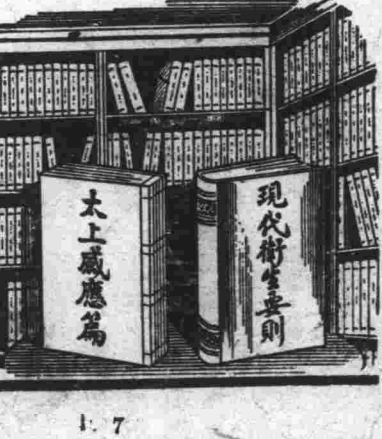 太上感應篇
現代衛生要則
7